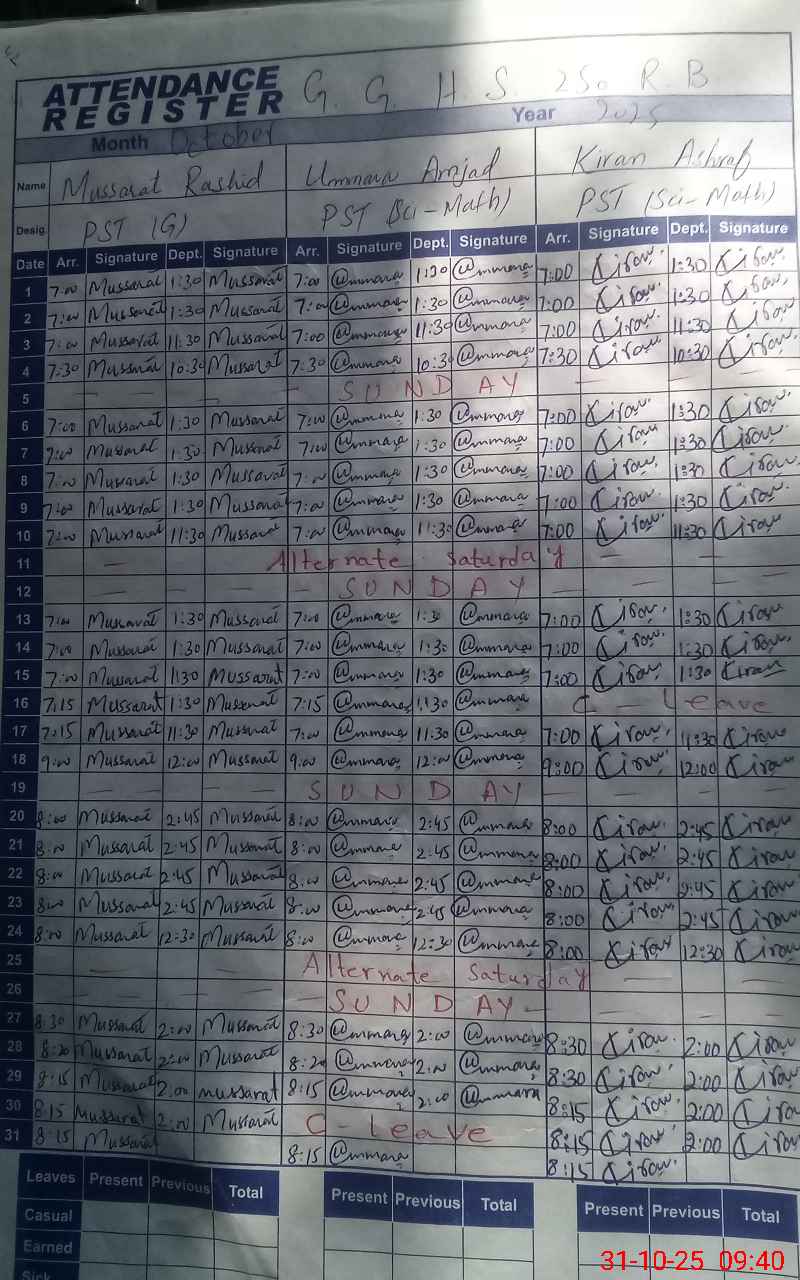 ATTENDANCE REGISTER G. G. H. S. 250 R. B
Month October Year 2025
Name Mussarat Rashid Ummara Amjad Kiran Ashraf
Desig. PST (G) PST (Sci-Math) PST (Sci-Math)
Date Arr. Signature Dept. Signature Arr. Signature Dept. Signature Arr. Signature Dept. Signature
1 7:00 Mussarat 1:30 Mussarat 7:00 @mmara 1:30 @mmara 7:00 Kiran. 1:30 Kiran.
2 7:00 Mussarat 1:30 Mussarat 7:00 @mmara 1:30 @mmara 7:00 Kiran. 1:30 Kiran.
3 7:00 Mussarat 11:30 Mussarat 7:00 @mmara 11:30 @mmara 7:00 Kiran. 11:30 Kiran.
4 7:30 Mussarat 10:30 Mussarat 7:30 @mmara 10:30 @mmara 7:30 Kiran. 10:30 Kiran.
5 — — — — — S U N D A Y — — — —
6 7:00 Mussarat 1:30 Mussarat 7:00 @mmara 1:30 @mmara 7:00 Kiran. 1:30 Kiran.
7 7:00 Mussarat 1:30 Mussarat 7:00 @mmara 1:30 @mmara 7:00 Kiran. 1:30 Kiran.
8 7:00 Mussarat 1:30 Mussarat 7:00 @mmara 1:30 @mmara 7:00 Kiran. 1:30 Kiran.
9 7:00 Mussarat 1:30 Mussarat 7:00 @mmara 1:30 @mmara 7:00 Kiran. 1:30 Kiran.
10 7:00 Mussarat 11:30 Mussarat 7:00 @mmara 11:30 @mmara 7:00 Kiran 11:30 Kiran
11 — Alternate Saturday — — —
12 — — — — — S U N D A Y — — — —
13 7:00 Mussarat 1:30 Mussarat 7:00 @mmara 1:30 @mmara 7:00 Kiran. 1:30 Kiran
14 7:00 Mussarat 1:30 Mussarat 7:00 @mmara 1:30 @mmara 7:00 Kiran. 1:30 Kiran.
15 7:00 Mussarat 1:30 Mussarat 7:00 @mmara 1:30 @mmara 7:00 Kiran 1:30 Kiran
16 7:15 Mussarat 1:30 Mussarat 7:15 @mmara 1:30 @mmara C - Leave
17 7:15 Mussarat 11:30 Mussarat 7:00 @mmara 11:30 @mmara 7:00 Kiran. 11:30 Kiran
18 9:00 Mussarat 12:00 Mussarat 9:00 @mmara 12:00 @mmara 9:00 Kiran. 12:00 Kiran
19 — — — — S U N D A Y — — — —
20 8:00 Mussarat 2:45 Mussarat 8:00 @mmara 2:45 @mmara 8:00 Kiran. 2:45 Kiran
21 8:00 Mussarat 2:45 Mussarat 8:00 @mmara 2:45 @mmara 8:00 Kiran. 2:45 Kiran
22 8:00 Mussarat 2:45 Mussarat 8:00 @mmara 2:45 @mmara 8:00 Kiran. 2:45 Kiran
23 8:00 Mussarat 2:45 Mussarat 8:00 @mmara 2:45 @mmara 8:00 Kiran 2:45 Kiran
24 8:00 Mussarat 12:30 Mussarat 8:00 @mmara 12:30 @mmara 8:00 Kiran 12:30 Kiran
25 — — Alternate Saturday — — —
26 — — — — — S U N D A Y — — — — —
27 8:30 Mussarat 2:00 Mussarat 8:30 @mmara 2:00 @mmara 8:30 Kiran. 2:00 Kiran
28 8:20 Mussarat 2:00 Mussarat 8:20 @mmara 2:00 @mmara 8:30 Kiran. 2:00 Kiran
29 8:15 Mussarat 2:00 mussarat 8:15 @mmara 2:00 @mmara 8:15 Kiran. 2:00 Kiran
30 8:15 Mussarat 2:00 Mussarat C - Leave 8:15 Kiran. 2:00 Kiran
31 8:15 Mussarat 8:15 @mmara 8:15 Kiran.
Leaves Present Previous Total Present Previous Total Present Previous Total
Casual
Earned
Sick
31-10-25 09:40